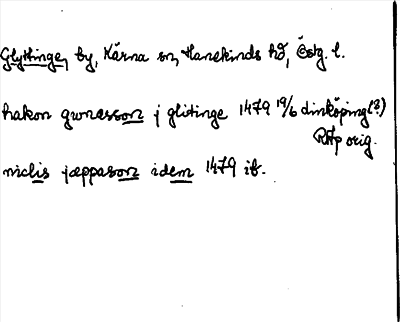 Glyttinge, by, Kärna sn, Hanekinds hd, Östg. l.
hakon gunnarsson j glitinge 1479 19/6 dinköping (?)
RAp orig.
niclis jæppason idem 1479 ib.